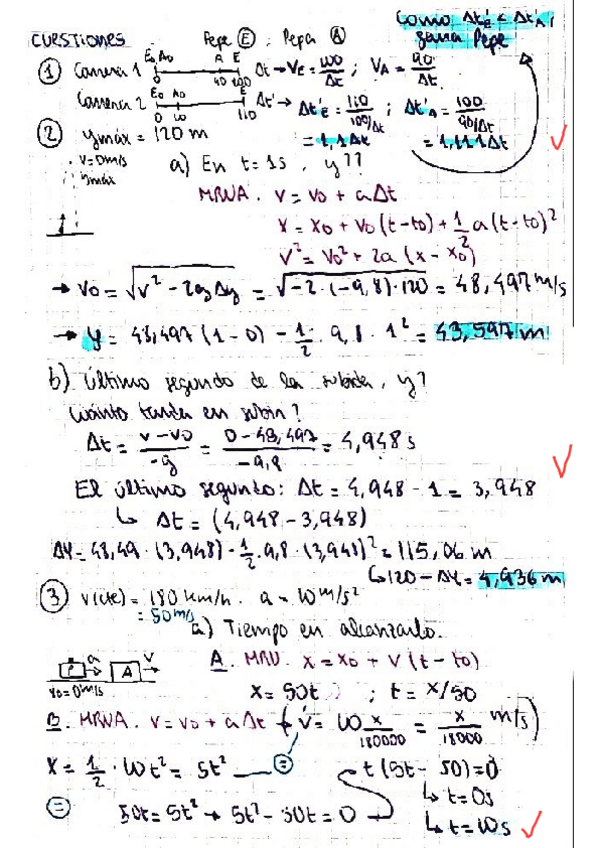 CUESTIONES Pepe (E) ; Pepa (A) Como Δt'E < Δt'A, gana Pepe
① Carrera 1 E₀, A₀ A E Δt → VE = 100/Δt ; VA = 90/Δt
0 90 100
Carrera 2 E₀ A₀ E Δt' → Δt'E = 110/(100/Δt) ; Δt'A = 100/(90/Δt)
0 10 110 = 1,1Δt = 1,111Δt
② ymáx = 120 m
v = 0m/s a) En t = 1s, y??
ymáx
MRUA. v = v₀ + aΔt
x = x₀ + v₀(t-t₀) + 1/2 a(t-t₀)²
v² = v₀² + 2a(x - x₀)
→ v₀ = √(v² - 2gΔy) = √(-2·(-9,8)·120) = 48,497 m/s
→ y = 48,497(1-0) - 1/2 · 9,8 · 1² = 43,597 m
b) Último segundo de la subida, y?
Cuánto tarda en subir?
Δt = (v-v₀)/-g = (0-48,497)/-9,8 = 4,948 s
El último segundo: Δt = 4,948 - 1 = 3,948
↳ Δt = (4,948 - 3,948)
Δy = 48,49·(3,948) - 1/2·9,8·(3,948)² = 115,06 m
↳ 120 - Δy = 4,936 m
③ v(cte) = 180 km/h. a = 10 m/s²
= 50 m/s
a) Tiempo en alcanzarlo.
a v A. MRU. x = x₀ + v(t - t₀)
A
v₀ = 0m/s x = 50t ; t = x/50
B. MRUA. v = v₀ + aΔt v = 10 x/180000 = x/18000 m/s)
x = 1/2 · 10t² = 5t² = t(5t - 50) = 0
↳ t = 0s
= 50t = 5t² → 5t² - 50t = 0
↳ t = 10s